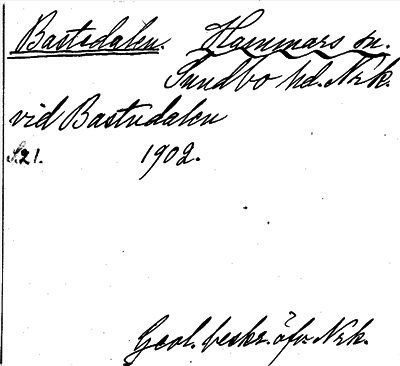 Bastedalen. Hammars sn.
Sundbo hd. Nrk.
vid Bastudalen
S.21. 1902.
Geol. beskr. öfv. Nrk.